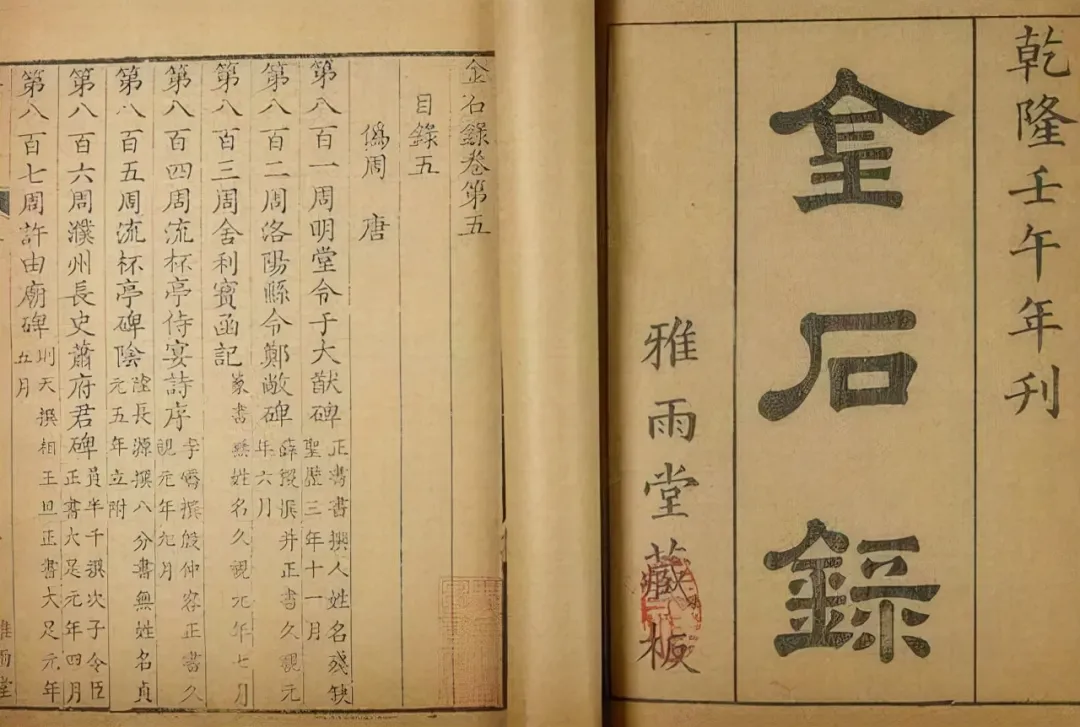 乾隆壬午年刊
金石錄
雅雨堂藏板
金石錄卷第五
目錄五
僞周 唐
第八百一周明堂令于大猷碑 正書書撰人姓名殘缺聖歷三年十一月
第八百二周洛陽縣令鄭敞碑 薛稷撰并正書久視元年六月
第八百三周舍利寳函記 篆書無姓名久視元年七月
第八百四周流杯亭侍宴詩序 李嶠撰殷仲容正書久視元年九月
第八百五周流杯亭碑陰 陸長源撰八分書無姓名貞元五年立附
第八百六周濮州長史蕭府君碑 員半千撰次子令臣正書大足元年四月
第八百七周許由廟碑 則天撰相王旦正書大足元年五月
雅雨堂